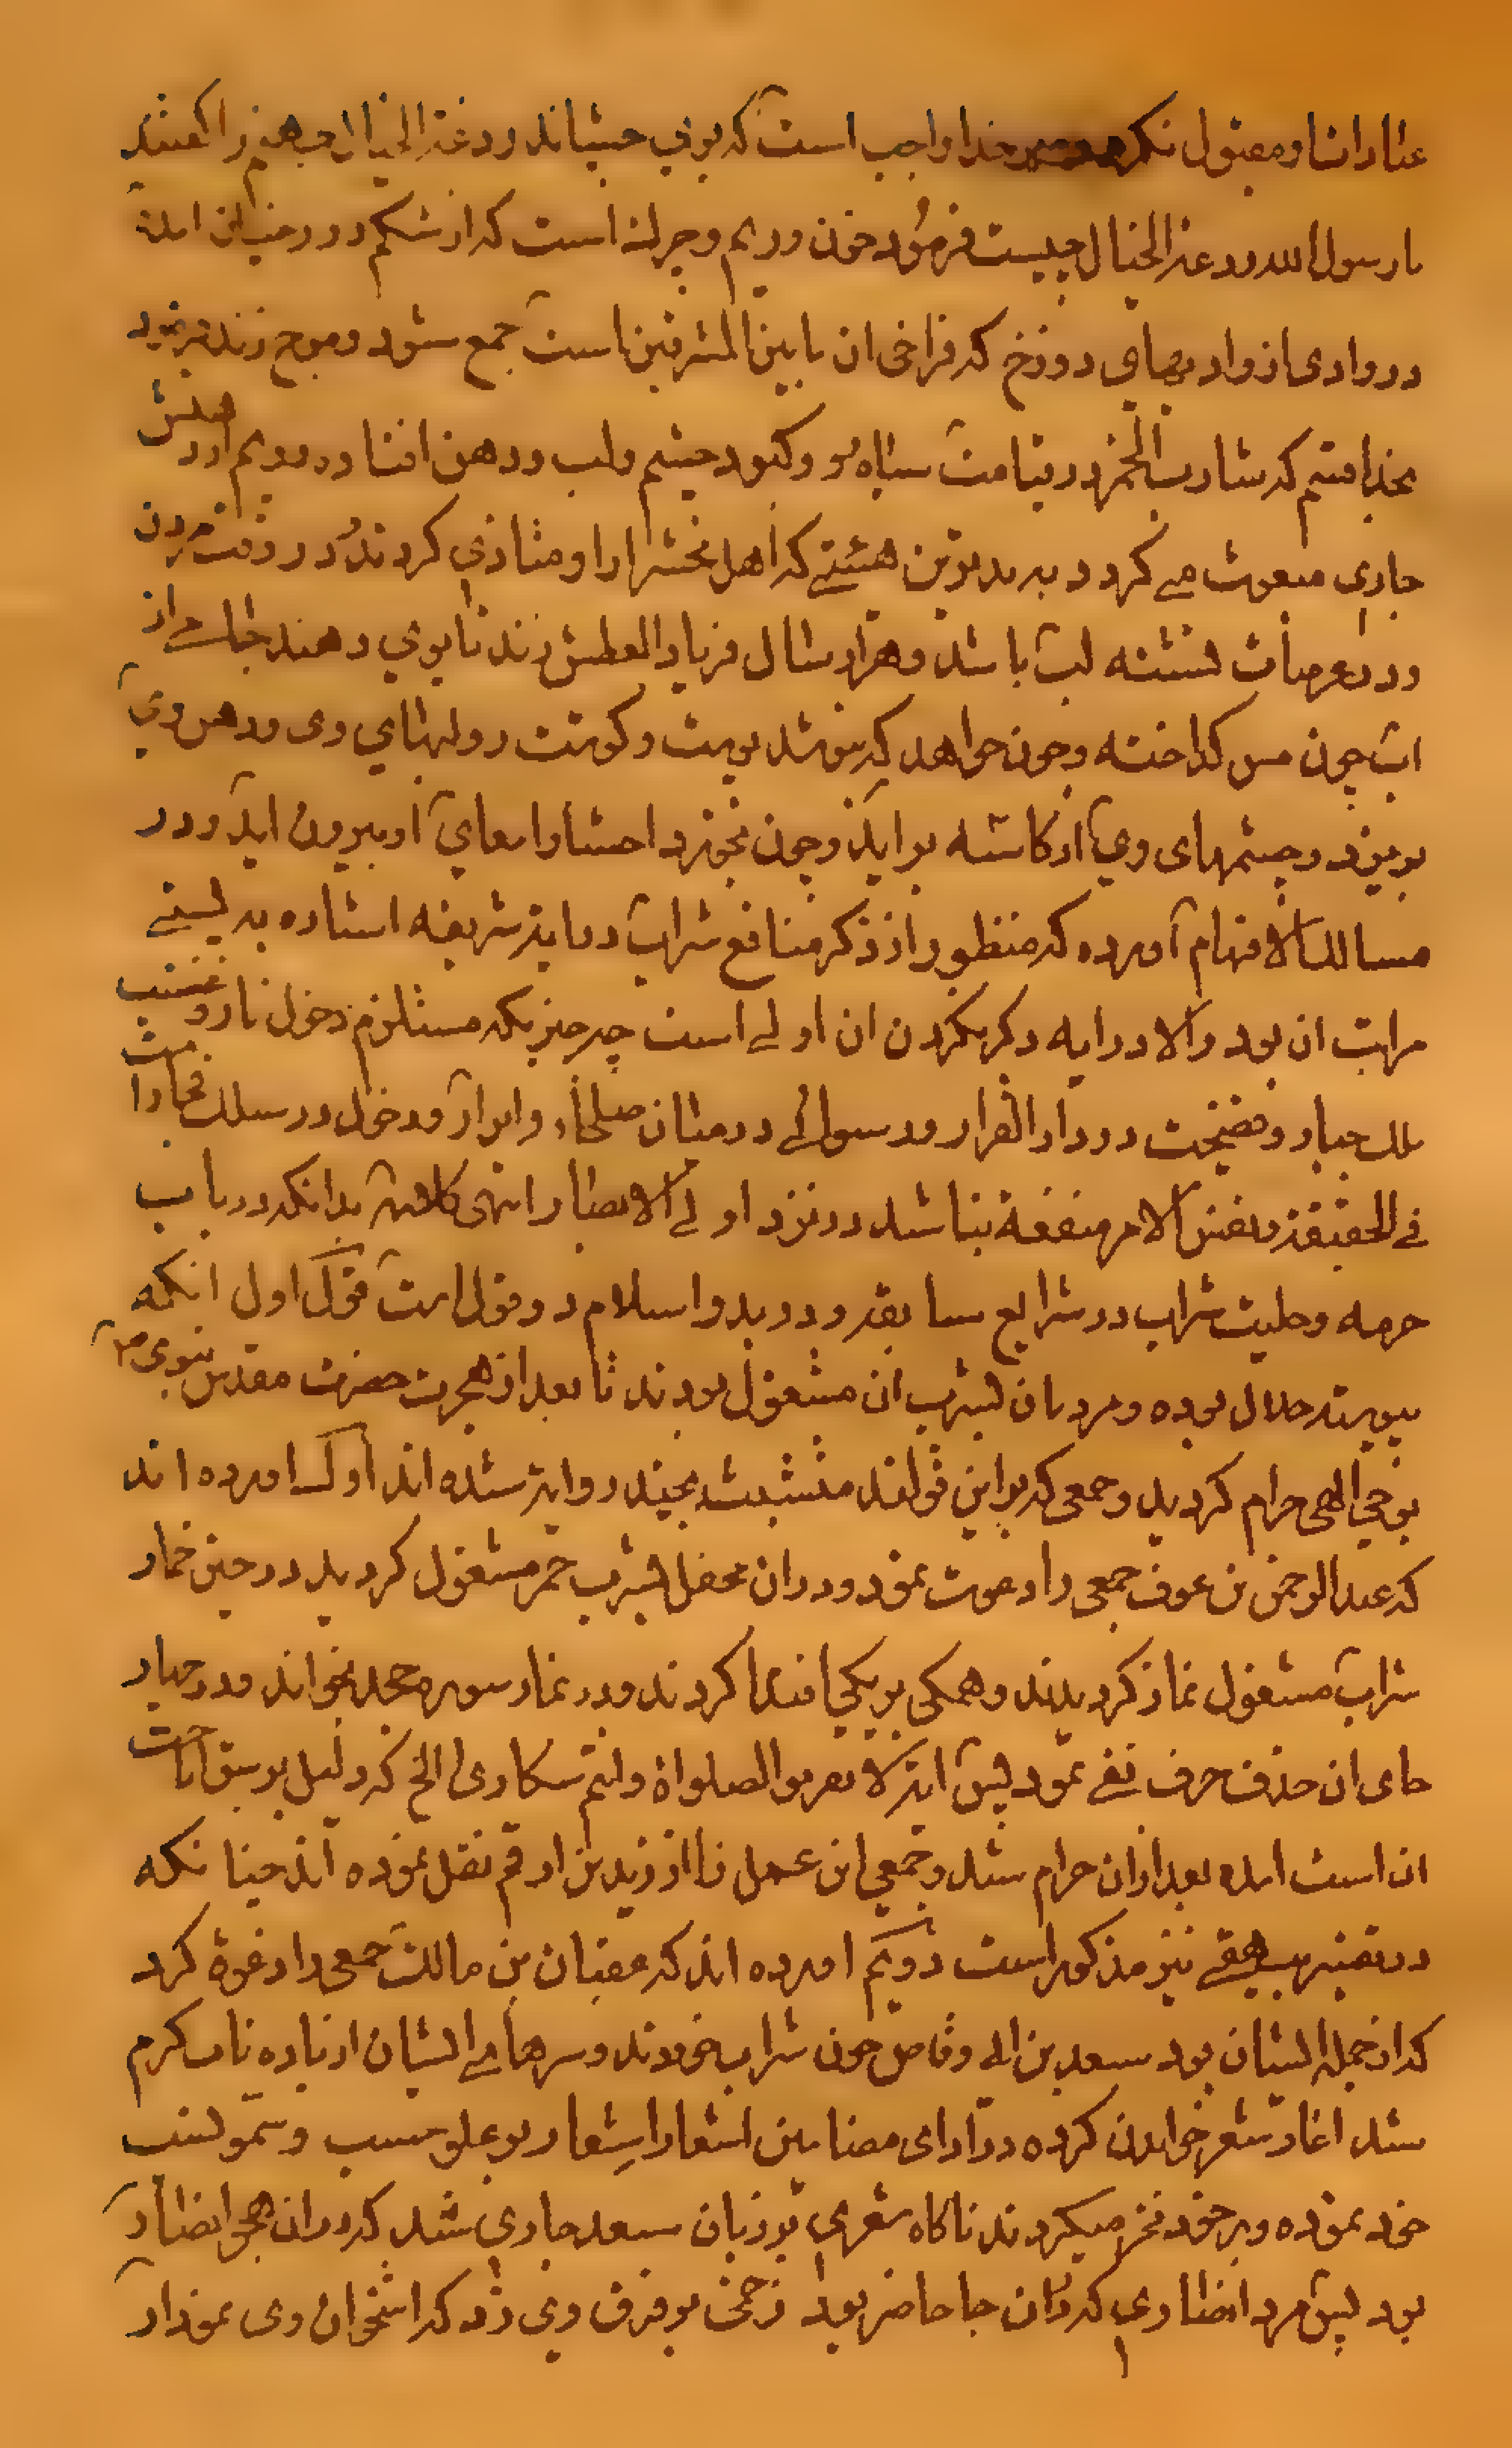 عبادات او مقبول نکردد و بر خدا واجب است که بوی چشاند ردغة الخبال جهنم را گفتند
یا رسول الله ردغة الخبال چیست فرمود خون و ریم و چرك است که از شکم در زمین آن آمده
در وادی از وادیهای دوزخ که فراخی ان ما بین المشرقین است جمع شود و موج زند فرمود
بخدا قسم که شارب الخمر در قیامت سیاه رو و کبود چشم و لب و دهن افتاده و ریم از دهنش
جاری مبعوث می گردد به بدترین هیئتی که اهل محشر از او متاذی کردند و در وقت مردن
و در عرصات تشنه لب باشد و هزار سال فریاد العطش زند تا بوی دهند جامی از
آب چون مس کداخته و چون خواهد که بنوشد پوست و کوشت رو و لبهای وی در دهن وی
بریزد و چشمهای وی از کاسه برآید و چون بخورد احشا و امعای او بیرون آید و در
مسالك الافهام آورده که منظور از ذکر منافع شراب در آیه شریفه اشاره به پستی
مراتب ان بود و الا در آیه ذکر نکردن ان اولی است چه چیزیکه مستلزم دخول نار و غضب
ملك جبار و فضیحت در دار القرار و رسوائی در میان صلحاء و ابرار و دخول در سلك فجار است
فی الحقیقة و نفس الامر منفعة نباشد در نزد اولی الابصار انتهی کلامه بدانکه در باب
حرمه و حلیت شراب در شرایع سابقه و در بدو اسلام دو قول است قول اول انکه
پیوسته حلال بوده و مردمان بشرب ان مشغول بودند تا بعد از هجرت حضرت مقدس نبوی ص
بوحی الهی حرام کردید و جمعی که بر این قولند متشبث بچند روایة شده اند اول آورده اند
که عبدالرحمن بن عوف جمعی را دعوت نمود و در ان محفل بشرب خمر مشغول کردید در حین خمار
شراب مشغول نماز کردیدند و همکی بر یکی اقتدا کردند و در نماز سوره جحد بخواند و در چهار
جای ان حذف حرف نفی نمود پس آیة لا تقربوا الصلواة و انتم سکاری الخ که دلیل بر سبق اباحت
ان است آمده بعد از ان حرام شد و جمعی این عمل را از زید بن ارقم نقل نموده اند چنانکه
در تفسیر بیهقی نیز مذکور است دویم آورده اند که عتبان بن مالك جمعی را دعوة کرد
که از جمله ایشان بود سعد بن ابی وقاص چون شراب خوردند و سرهای ایشان از باده ناب کرم
شد آغاز شعر خواندن کرده در ادای مضامین اشعار اشعار بر علو حسب و سمو نسب
خود نموده و بر خود فخر میکردند ناکاه شعری بر زبان سعد جاری شد که در ان هجو انصار
بود پس مرد انصاری که در ان جا حاضر بود زخمی بر فرق وی زد که استخوان وی نمودار